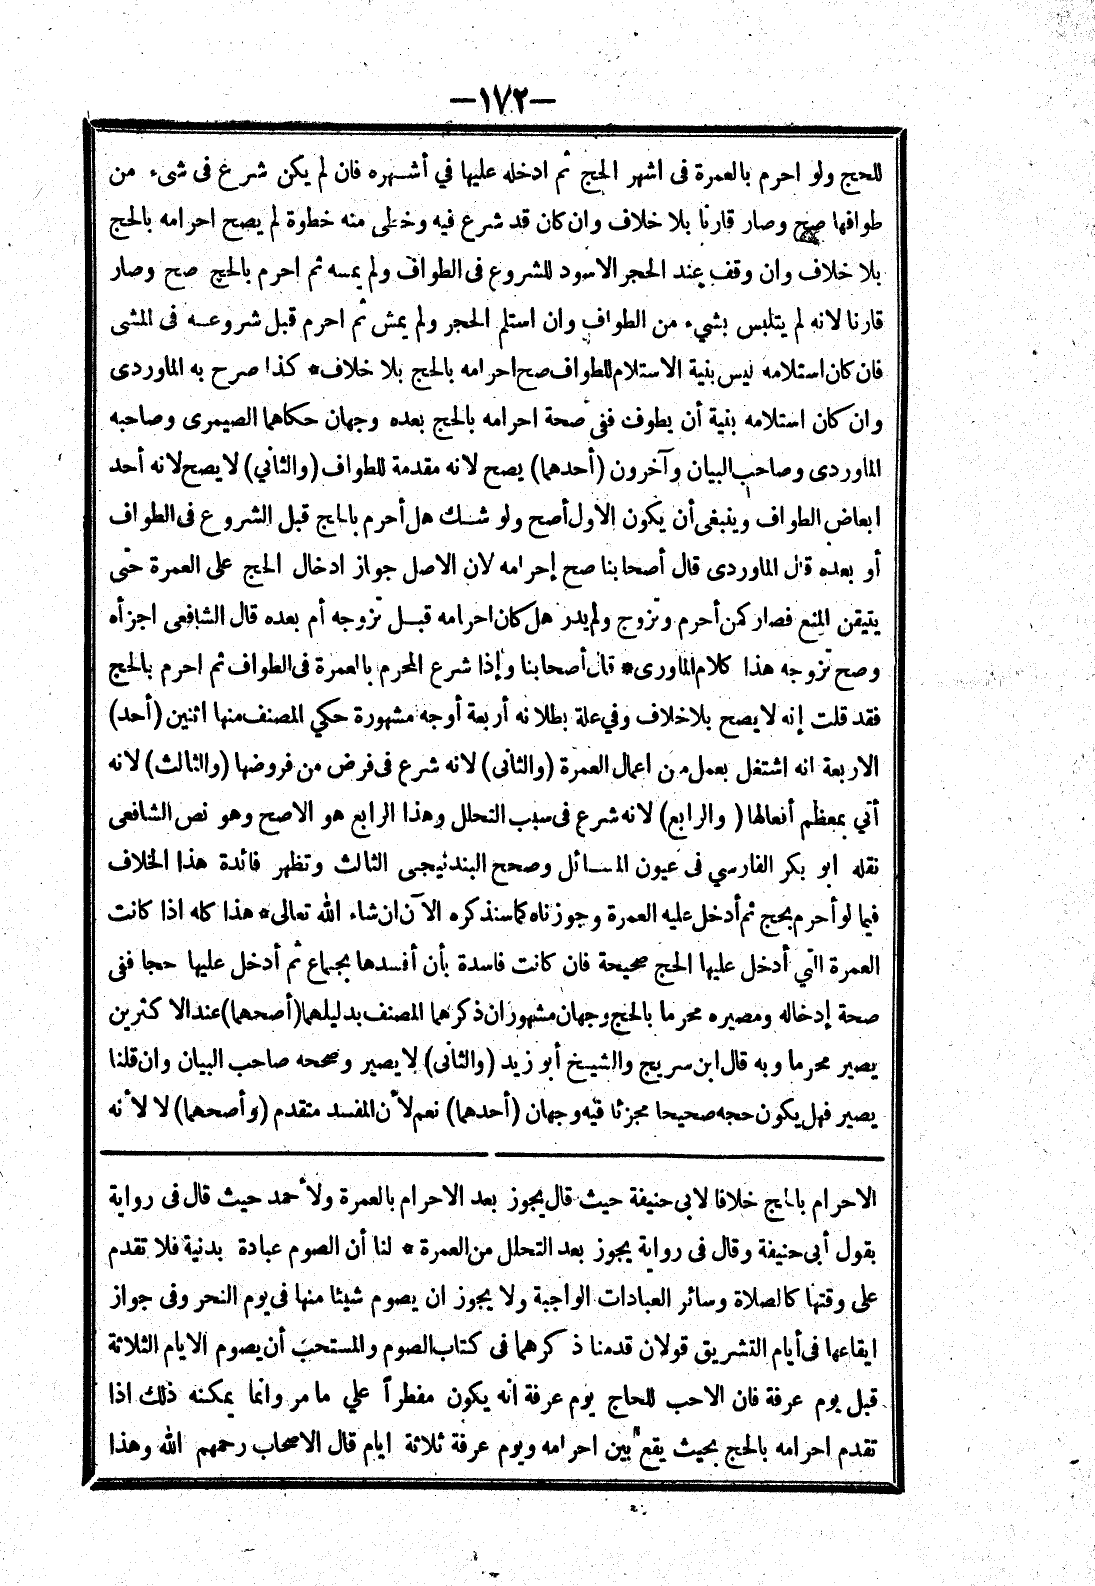 —١٧٢—
للحج ولو احرم بالعمرة فى اشهر الحج ثم ادخله عليها في أشهره فان لم يكن شرع فى شىء من
طوافها صح وصار قارنا بلا خلاف وان كان قد شرع فيه وخطى منه خطوة لم يصح احرامه بالحج
بلا خلاف وان وقف عند الحجر الاسود للشروع فى الطواف ولم يمسه ثم احرم بالحج صح وصار
قارنا لانه لم يتلبس بشيء من الطواف وان استلم الحجر ولم يمش ثم احرم قبل شروعه فى المشى
فان كان استلامه ليس بنية الاستلام للطواف صح احرامه بالحج بلا خلاف* كذا صرح به الماوردى
وان كان استلامه بنية أن يطوف ففى صحة احرامه بالحج بعده وجهان حكاهما الصيمرى وصاحبه
الماوردى وصاحب البيان وآخرون (أحدهما) يصح لانه مقدمة للطواف (والثاني) لا يصح لانه أحد
ابعاض الطواف وينبغى أن يكون الاول أصح ولو شك هل أحرم بالحج قبل الشروع فى الطواف
أو بعده قال الماوردى قال أصحابنا صح إحرامه لان الاصل جواز ادخال الحج على العمرة حتى
يتيقن المنع فصار كمن أحرم وتزوج ولم يدر هل كان احرامه قبل تزوجه أم بعده قال الشافعى اجزأه
وصح تزوجه هذا كلام الماورى* قال أصحابنا وإذا شرع المحرم بالعمرة فى الطواف ثم احرم بالحج
فقد قلت إنه لا يصح بلا خلاف وفي علة بطلانه أربعة أوجه مشهورة حكي المصنف منها اثنين (أحد)
الاربعة انه اشتغل بعمل من اعمال العمرة (والثانى) لانه شرع فى فرض من فروضها (والثالث) لانه
أتي بمعظم أفعالها (والرابع) لانه شرع فى سبب التحلل وهذا الرابع هو الاصح وهو نص الشافعى
نقله ابو بكر الفارسي فى عيون المسائل وصحح البندنيجى الثالث وتظهر فائدة هذا الخلاف
فيما لو أحرم بحج ثم أدخل عليه العمرة وجوزناه كما سنذكره الآن ان شاء الله تعالى* هذا كله اذا كانت
العمرة التي أدخل عليها الحج صحيحة فان كانت فاسدة بأن أفسدها بجماع ثم أدخل عليها حجا ففى
صحة إدخاله ومصيره محرما بالحج وجهان مشهوران ذكرهما المصنف بدليلهما (أصحهما) عند الاكثرين
يصير محرما وبه قال ابن سريج والشيخ أبو زيد (والثانى) لا يصير وصححه صاحب البيان وان قلنا
يصير فهل يكون حجه صحيحا مجزئا فيه وجهان (أحدهما) نعم لأن المفسد متقدم (وأصحهما) لا لأنه
الاحرام بالحج خلافا لابى حنيفة حيث قال يجوز بعد الاحرام بالعمرة ولأحمد حيث قال فى رواية
بقول أبى حنيفة وقال فى رواية يجوز بعد التحلل من العمرة * لنا أن الصوم عبادة بدنية فلا تقدم
على وقتها كالصلاة وسائر العبادات الواجبة ولا يجوز ان يصوم شيئا منها فى يوم النحر وفى جواز
ايقاعها فى أيام التشريق قولان قدمنا ذكرهما فى كتاب الصوم والمستحب أن يصوم الايام الثلاثة
قبل يوم عرفة فان الاحب للحاج يوم عرفة انه يكون مفطراً علي ما مر وانما يمكنه ذلك اذا
تقدم احرامه بالحج بحيث يقع بين احرامه ويوم عرفة ثلاثة ايام قال الاصحاب رحمهم الله وهذا